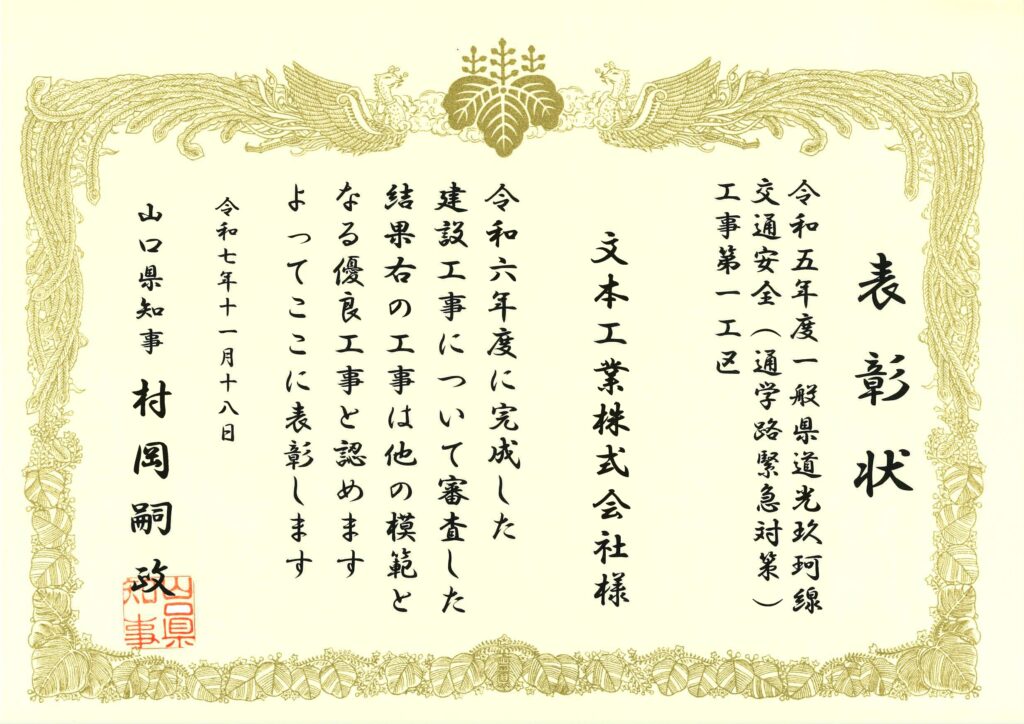 表彰状
令和五年度一般県道光玖珂線
交通安全（通学路緊急対策）
工事第一工区
文本工業株式会社様
令和六年度に完成した
建設工事について審査した
結果右の工事は他の模範と
なる優良工事と認めます
よってここに表彰します
令和七年十一月十八日
山口県知事 村岡嗣政
山口県
知事